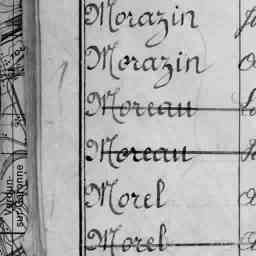 Morazin
Morazin
Moreau
Moreau
Morel
Morel
Verdun-
sur-Garonne